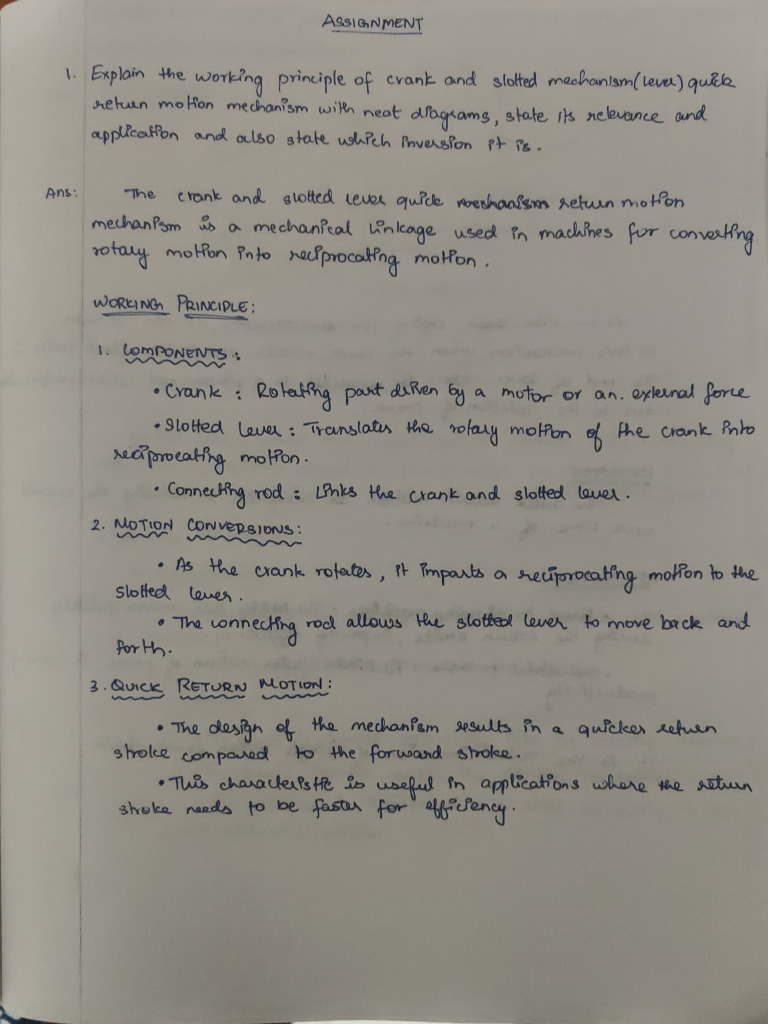 ASSIGNMENT
1. Explain the working principle of crank and slotted mechanism(lever) quick
return motion mechanism with neat diagrams, state its relevance and
application and also state which inversion it is.
Ans: The crank and slotted lever quick mechanism return motion
mechanism is a mechanical linkage used in machines for converting
rotary motion into reciprocating motion.
WORKING PRINCIPLE:
1. COMPONENTS:
• Crank : Rotating part driven by a motor or an. external force
• Slotted lever : Translates the rotary motion of the crank into
reciprocating motion.
• Connecting rod : Links the crank and slotted lever.
2. MOTION CONVERSIONS:
• As the crank rotates, it imparts a reciprocating motion to the
slotted lever.
• The connecting rod allows the slotted lever to move back and
forth.
3. QUICK RETURN MOTION:
• The design of the mechanism results in a quicker return
stroke compared to the forward stroke.
• This characteristic is useful in applications where the return
stroke needs to be faster for efficiency.